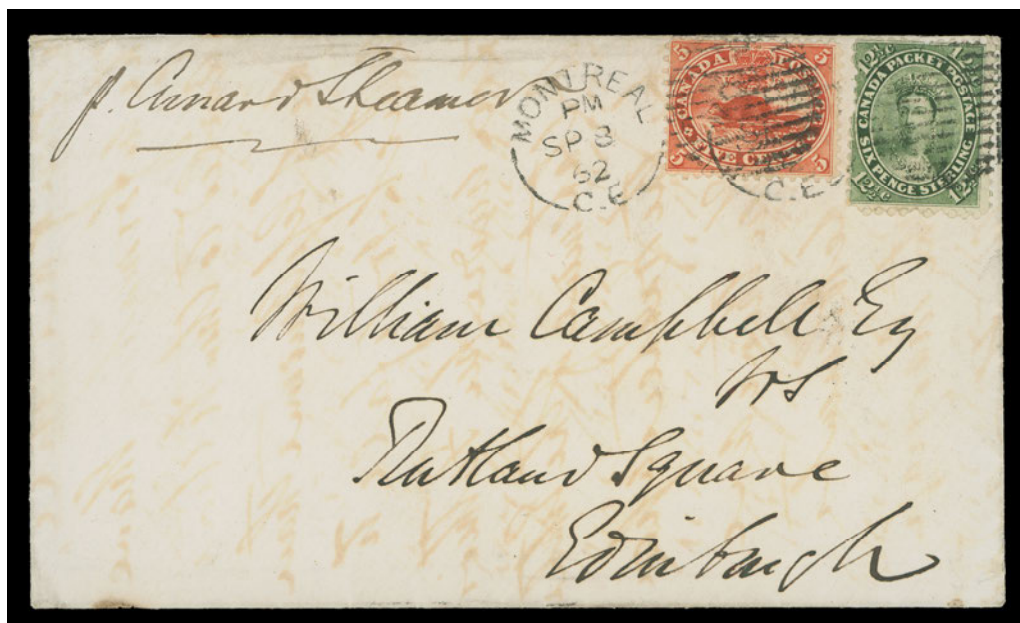 p. Cunard Steamer
MONTREAL
PM
SP 8
62
C.E
5 5
CANADA POS
FIVE CEN
5 5
C.E
12½c
CANADA PACKET POSTAGE
SIX PENCE STERLING
12½c
William Campbell Esq
WS
Rutland Square
Edinburgh